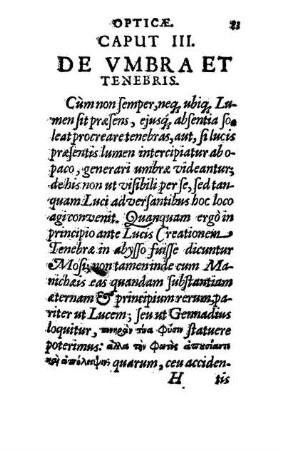 OPTICÆ.
CAPUT III.
DE VMBRA ET
TENEBRIS.
Cùm non semper, neq; ubiq; Lu-
men sit præsens, ejusq; absentia so-
leat procreare tenebras, aut, si lucis
præsentis lumen intercipiatur ab o-
paco, generari umbræ videantur;
de his non ut visibili per se, sed tan-
quam Luci adversantibus hoc loco
agi convenit. Quanquam ergò in
principio ante Lucis Creationem
Tenebræ in abysso fuisse dicuntur
Mosi; non tamen inde cum Ma-
nichæis eas quandam substantiam
æternam & principium rerum, pa-
riter ut Lucem; seu ut Gennadius
loquitur, πονηρὸν ἵνα φύσιν statuere
poterimus: ἀλλα τὴν φωτὸς
quarum, ceu acciden-
H tis